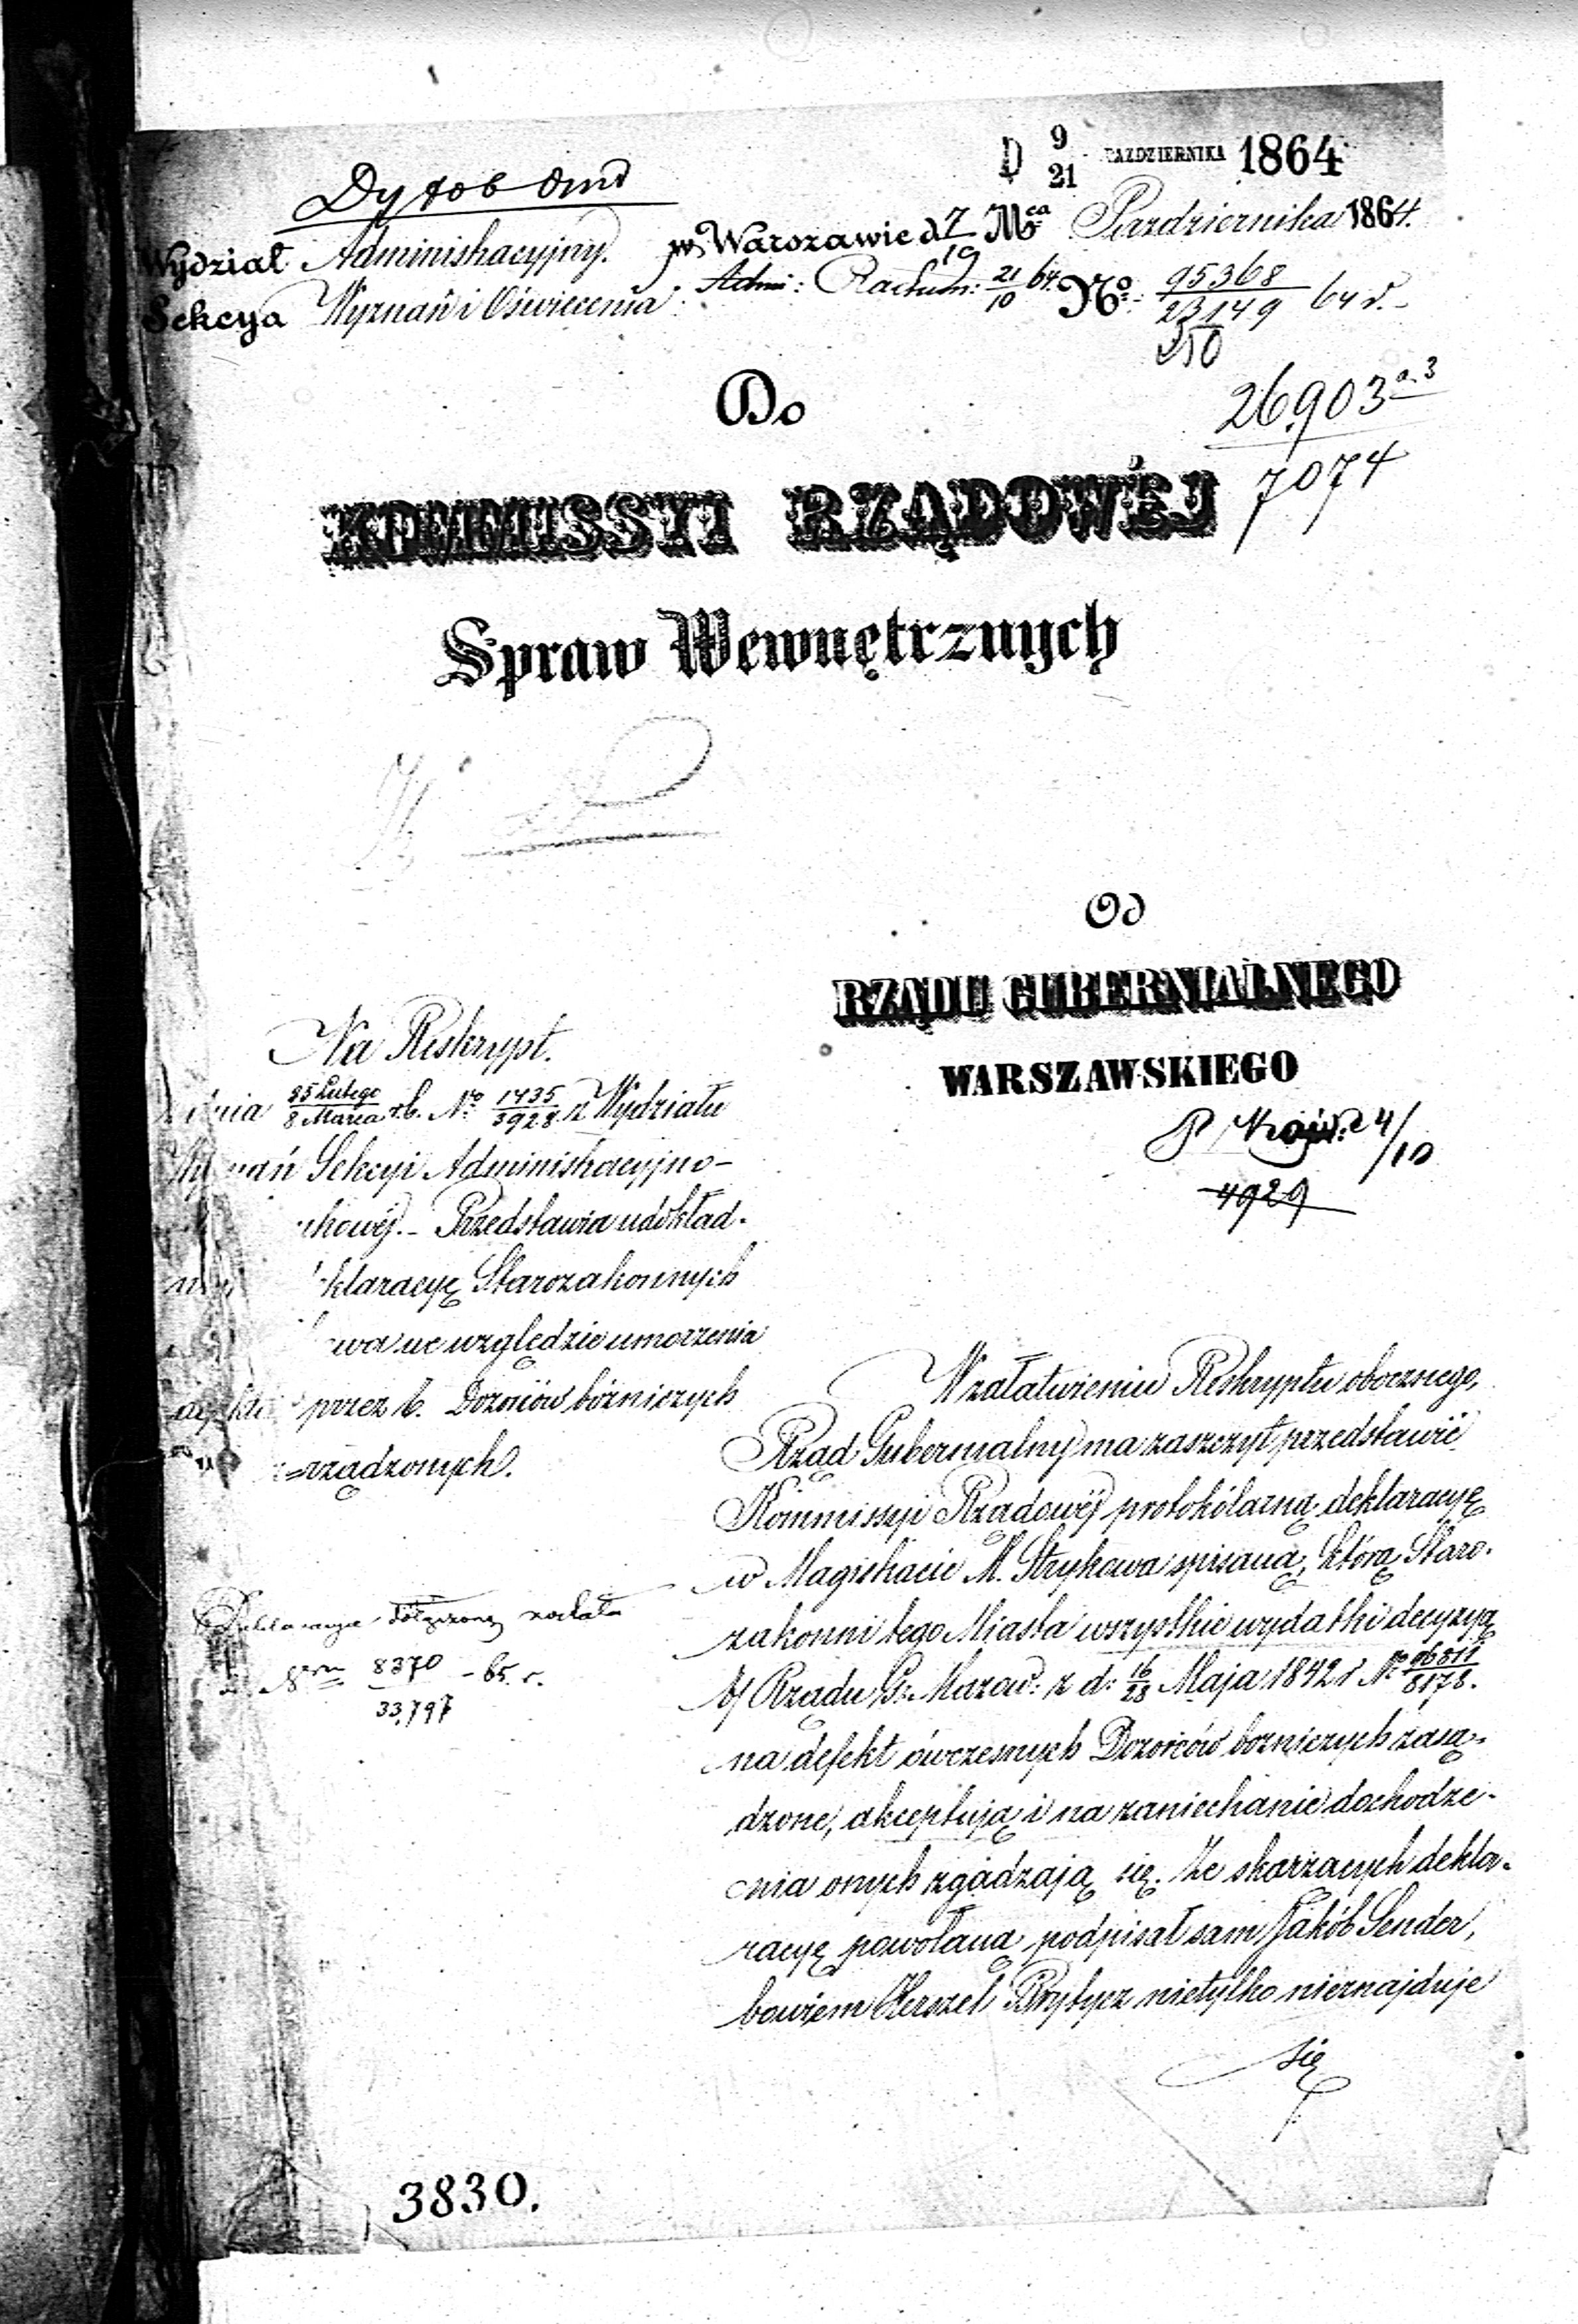 D 9/21 PAZDZIERNIKA 1864
Wydział Administracyjny. w Warszawie d. 7/19 Mca Października 1864.
Sekcya Wyznań i Oświecenia. Admi: Rachun: 21/10 64. No. 95368/23149 64 r.
26,903
7074
Do
KOMMISSYI RZĄDOWÉJ
Spraw Wewnętrznych
Od
RZĄDU GUBERNIALNEGO
WARSZAWSKIEGO
24/10
4929
Na Reskrypt.
dnia 25 Lutego/8 Marca r.b. No 1435/3928 z Wydziału
Wyznań Sekcyi Administracyjno-
chowéj. - Przedstawia udokład-
klaracyę Starozakonnych
wa we względzie umorzenia
przez b. Dozorców bóżniczych
rządzonych.
Deklaracya dołączona została
8370/33,797 - 65. r.
W załatwieniu Reskryptu obocznego,
Rząd Gubernialny ma zaszczyt przedstawić
Kommissyi Rządowéj protokólarną deklaracyę
w Magistracie M. Strykowa spisaną, którą Staro-
zakonni tego Miasta wszystkie wydatki decyzyą
b. Rządu G. Mazow: z d: 16/28 Maja 1842 r No 96811/8178.
na defekt ówczesnych Dozorców bożniczych zasą-
dzone, akceptują i na zaniechanie dochodze-
nia onych zgadzają się. Ze skarzanych dekla-
racyę powołaną podpisał sam Jakób Sender,
bowiem Herszel Prytycz nietylko nieznajduje
się
3830.